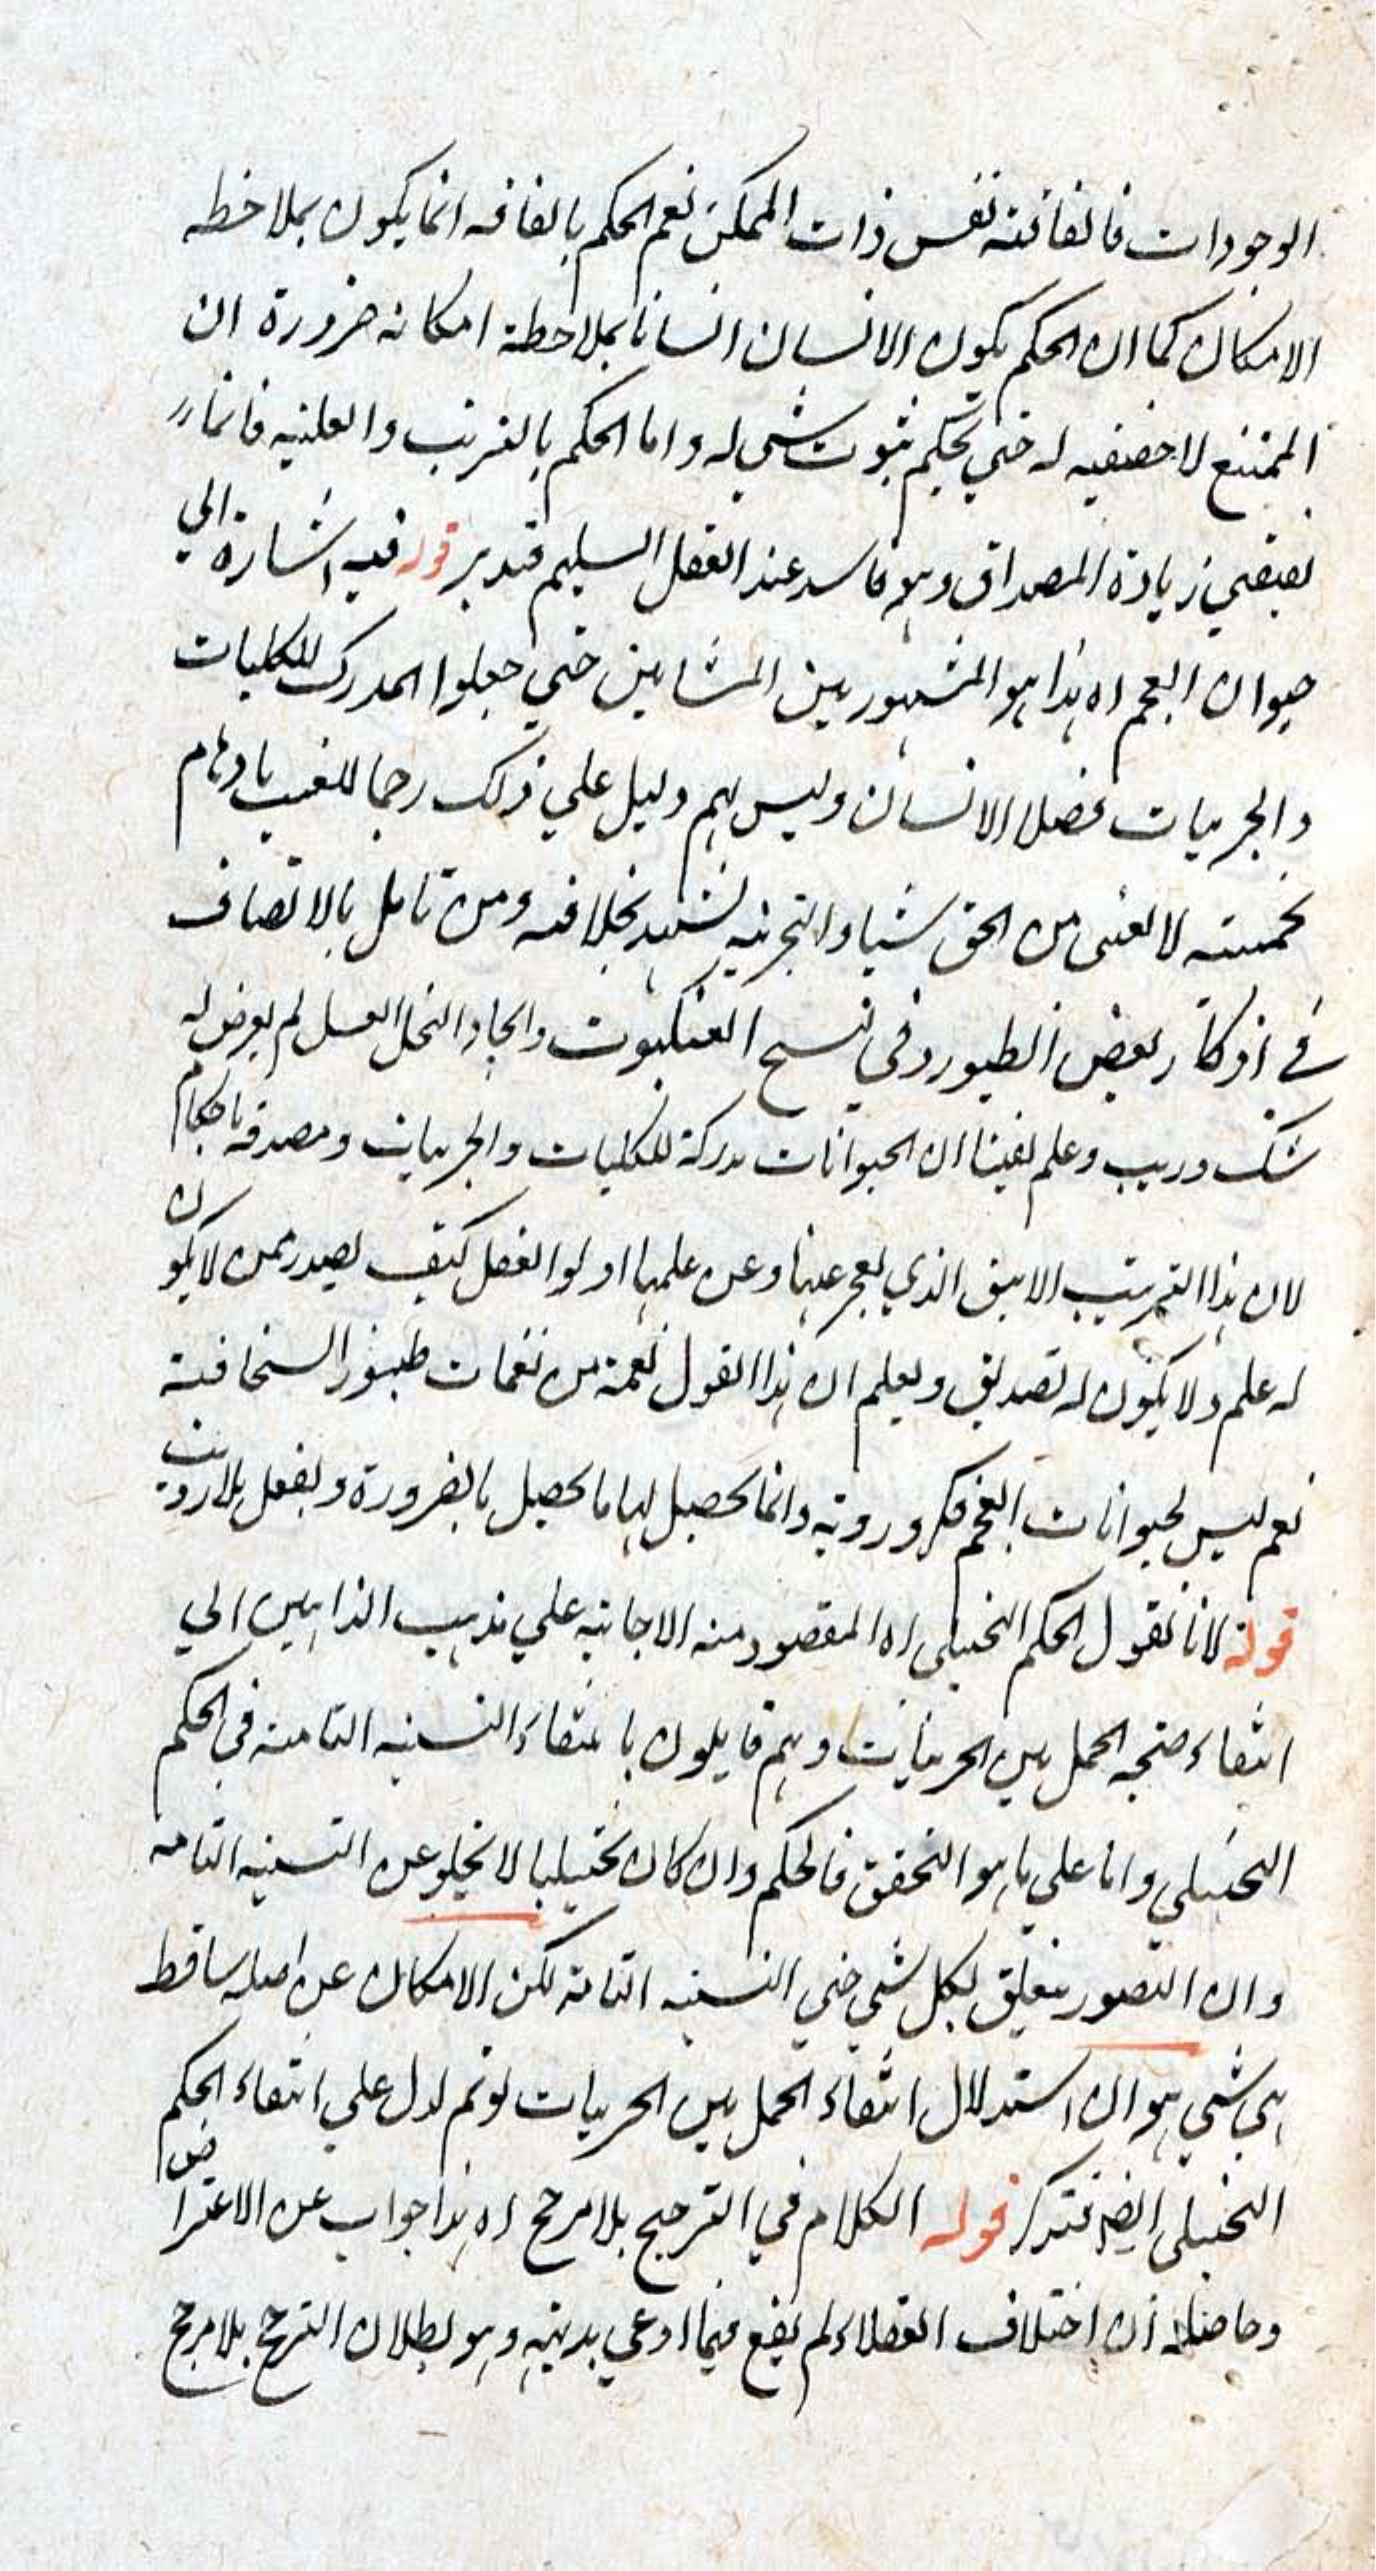 الوجودات فالفاقته نفس ذات الممكن نعم الحكم بالفاقه انما يكون بملاحظه
الامكان كما ان الحكم بكون الانسان انسانا بملاحظة امكانه ضرورة ان
الممتنع لا حقيقيه له حتي يحكم بثبوت شي له واما الحكم بالغريب والعلنيه فانما
يقتضي زيادة المصداق وهو فاسد عند العقل السليم فتدبر قوله فيه اشارة الي
حيوان العجم اه هذا هو المشهور بين المشايين حتي جعلوا المدرك للكليات
والجزييات فصلا للانسان وليس لهم دليل علي ذلك رجما للغيب باوهام
لا يغني من الحق شيا والتجربه تشهد بخلافه ومن تامل بالانصاف
في اوكار بعض الطيور وفي نسج العنكبوت وايجاد النحل العسل لم يعرض له
شك وريب وعلم يقينا ان الحيوانات مدركة للكليات والجزييات ومصدقه باحكام
لان هذا الترتيب الانيق الذي يعجز عنها وعن علمها اولوا العقل كيف يصدر ممن لا يكون
له علم ولا يكون له تصديق ويعلم ان هذا القول نغمة من نغمات طنبور السخافة
نعم ليس لحيوانات العجم فكر وروية وانما يحصل لها ما يحصل بالضرورة ويفعل بلا رويت
قوله لانا نقول الحكم التخييلي اه المقصود منه الاجابه علي مذهب الذاهبين الي
انتفاء صحه الحمل بين الجزييات وهم قايلون بانتفاء النسبه التامة في الحكم
التخييلي واما علي ما هو التحقق فالحكم وان كان تخييليا لا يخلو عن النسبه التامه
وان التصور يتعلق بكل شي حتي النسبه التامة لكن الامكان عن اصله ساقط
شي هو ان استدلال انتفاء الحمل بين الجزييات لو تم لدل علي انتفاء الحكم
التخييلي ايضا فتذكر قوله الكلام في الترجيح بلا مرجح اه هذا جواب عن الاعتراض
وحاصله ان اختلاف العقلاء لم يقع فيما ادعي بديهيه وهو بطلان الترجح بلا مرجح